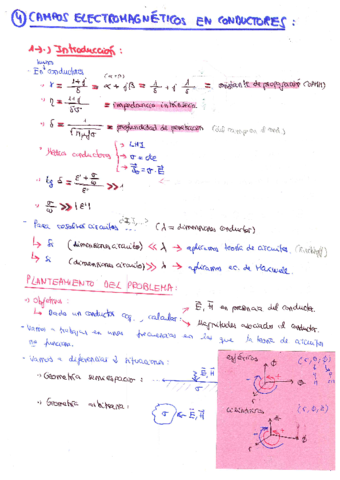 ④ CAMPOS ELECTROMAGNÉTICOS EN CONDUCTORES :
1→.) Introducción :
buenos
- En conductores
• γ = (1+j)/δ = α + jβ = 1/δ + j 1/δ = constante de propagación
• η = (1+j)/(δσ) = impedancia intrínseca
• δ = 1/√(πμfσ) = profundidad de penetración
• Medios conductores
LHI
σ = cte
J = σ·E
• tg δ = (ε'' + σ/ω)/ε' >> 1
• σ/ω >> |ε'|
- Para resolver circuitos (λ = dimensiones conductor)
↳ Si (dimensiones circuito) << λ → aplicamos teoría de circuitos. (Kirchhoff)
↳ Si (dimensiones circuito) >> λ → aplicamos ec. de Maxwell.
PLANTEAMIENTO DEL PROBLEMA :
- Objetivo :
↳ Dado un conductor cq, calcular :
E, H en presencia del conductor.
Magnitudes asociadas al conductor.
- Vamos a trabajar en unas frecuencias en las que la teoría de circuitos
no funciona.
- Vamos a diferenciar 2 situaciones :
• Geometría semiespacio :
E, H
σ
• Geometría arbitraria :
σ
E, H
esféricas (r, θ, φ)
cilíndricas (r, φ, z)